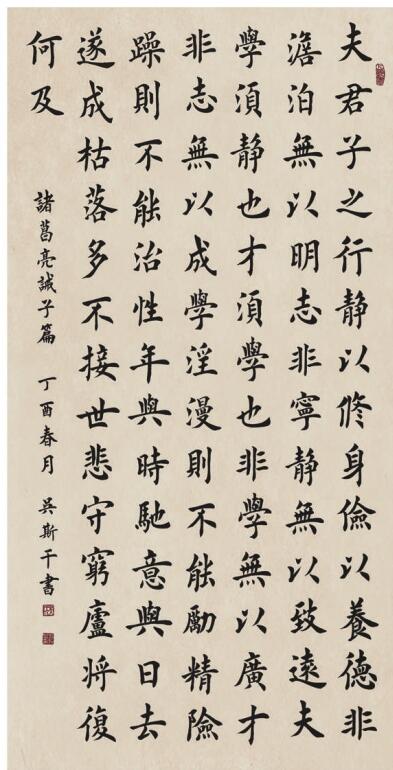 夫君子之行静以修身儉以養德非
澹泊無以明志非寧静無以致遠夫
學須静也才須學也非學無以廣才
非志無以成學淫漫則不能勵精險
躁則不能治性年與時馳意與日去
遂成枯落多不接世悲守窮廬將復
何及
諸葛亮誡子篇 丁酉春月 吴斯干書